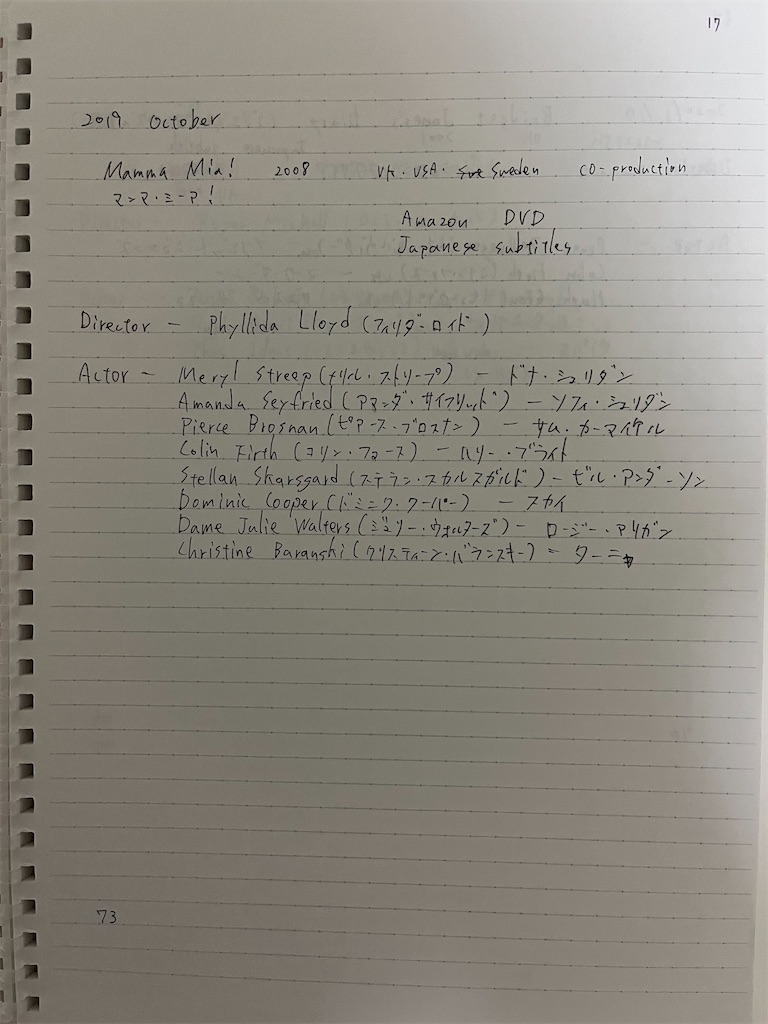 17
2019 October
Mamma Mia! 2008 UK・USA・Sweden co-production
マンマ・ミーア!
Amazon DVD
Japanese subtitles
Director － Phyllida Lloyd (フィリダ・ロイド)
Actor － Meryl Streep (メリル・ストリープ) － ドナ・シェリダン
Amanda Seyfried (アマンダ・サイフリッド) － ソフィ・シェリダン
Pierce Brosnan (ピアース・ブロスナン) － サム・カーマイケル
Colin Firth (コリン・ファース) － ハリー・ブライト
Stellan Skarsgard (ステラン・スカルスガルド) － ビル・アンダーソン
Dominic Cooper (ドミニク・クーパー) － スカイ
Dame Julie Walters (ジュリー・ウォルターズ) － ロージー・マリガン
Christine Baranski (クリスティーン・バランスキー) － ターニャ
73